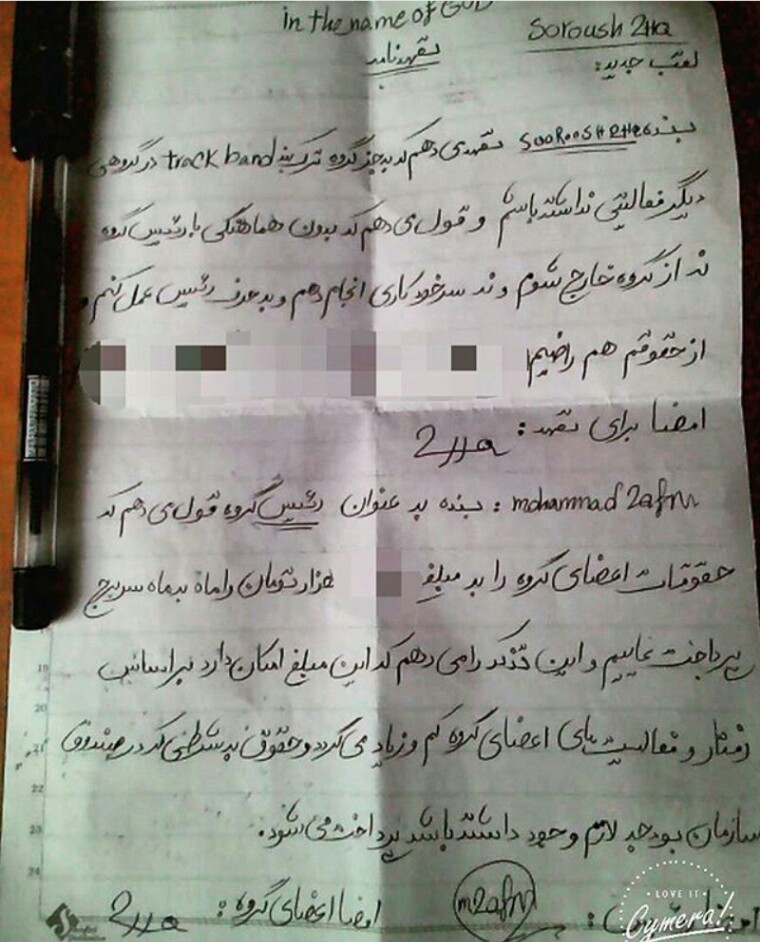 in the name of GOD
Soroush 2Ha
تعهدنامه
لقب جدید:
بنده SOOROOSH 2Ha تعهد می دهم که به جز گروه ترک بند track band در گروهی
دیگر فعالیتی نداشته باشم و قول می دهم که بدون هماهنگی با رئیس گروه
نه از گروه خارج شوم و نه سرخود کاری انجام دهم و به حرف رئیس عمل کنم و
از حقوقم هم راضیم
امضا برای تعهد: 2Ha
mohammad 2afm: بنده به عنوان رئیس گروه قول می دهم که
حقوقات اعضای گروه را به مبلغ هزار تومان را ماه به ماه سر برج
پرداخت نماییم و این تذکر را می دهم که این مبلغ امکان دارد بر اساس
رفتار و فعالیت های اعضای گروه کم و زیاد می گردد و حقوق به شرطی که در صندوق
سازمان بودجه لازم وجود داشته باشد پرداخت می شود.
امضا رئیس: m2afm
امضا اعضای گروه: 2Ha
19
20
21
22
23
24
LOVE IT
Cymera!